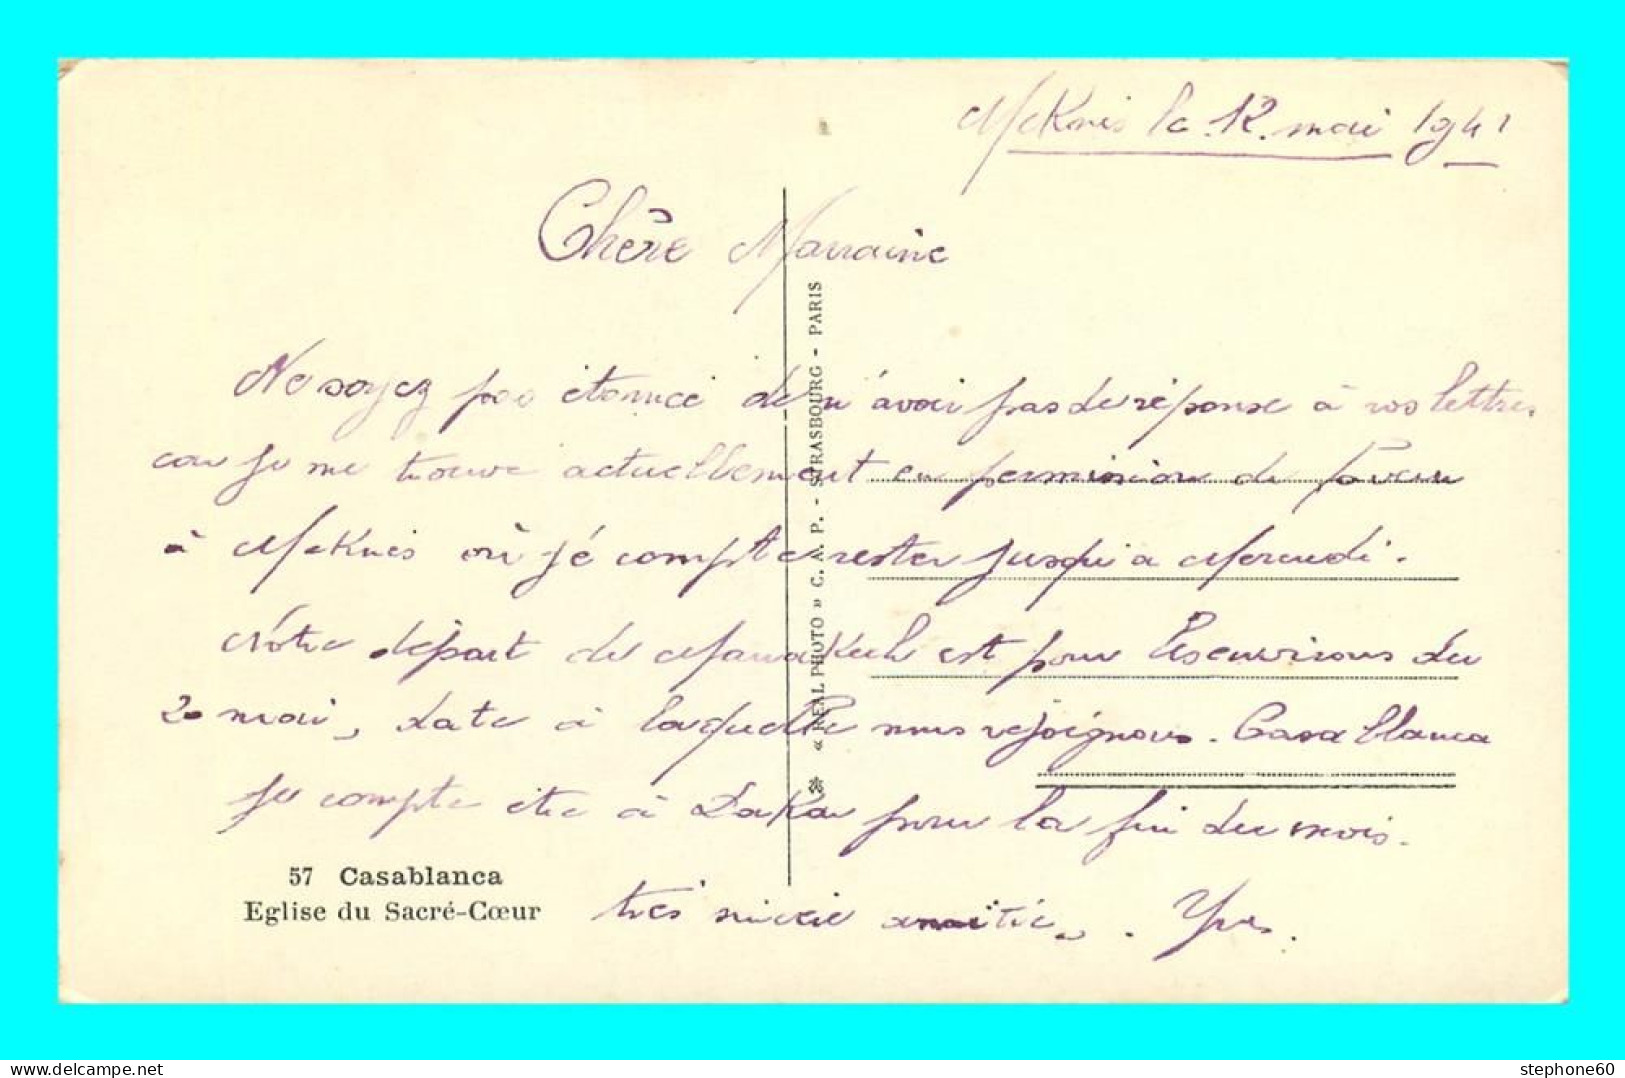 Meknès le 12 mai 1941
Chère Marraine
Ne soyez pas étonnée de n'avoir pas de réponse à vos lettres
car je me trouve actuellement en permission de faveur
à Meknès où jé compte rester jusqu'a Mercredi.
Nôtre départ de Marrakech est pour les environs du
20 mai, date à laquelle nous rejoignons. Casablanca
je compte etre à Dakar pour la fin du mois.
très sincère amitié. Yves.
57 Casablanca
Eglise du Sacré-Cœur
« REAL PHOTO » C. A. P. - STRASBOURG - PARIS
delcampe.net
stephone60